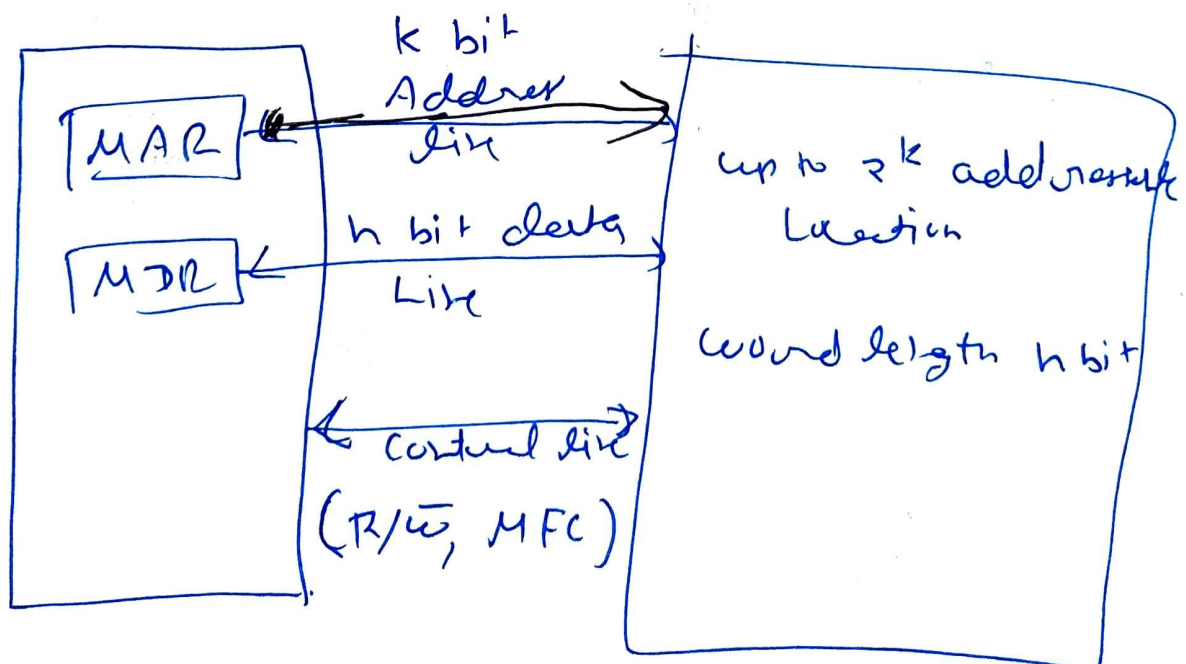 k bit
Address
line
MAR
n bit data
Line
MDR
control line
(R/w̅, MFC)
up to 2^k addressable
Location
word length n bit